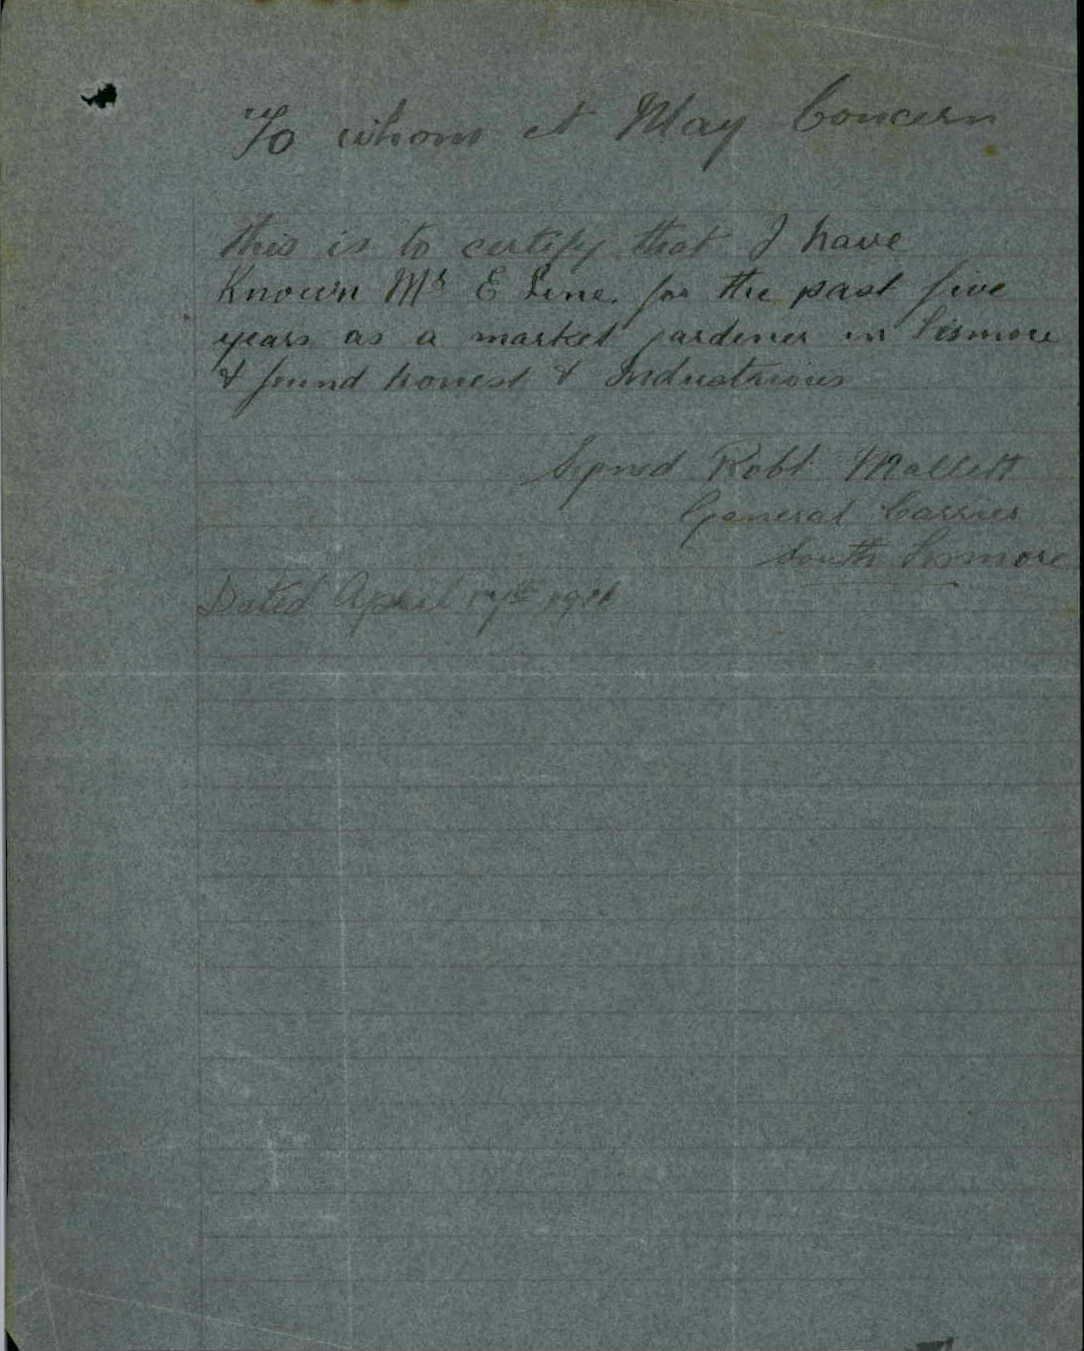 To whom it May Concern
this is to certify that I have
Known Mr E Line. for the past five
years as a market gardener in Lismore
& found honest & Industrious
Signed Robt Mallett
General Carrier
South Lismore
Dated April 17th